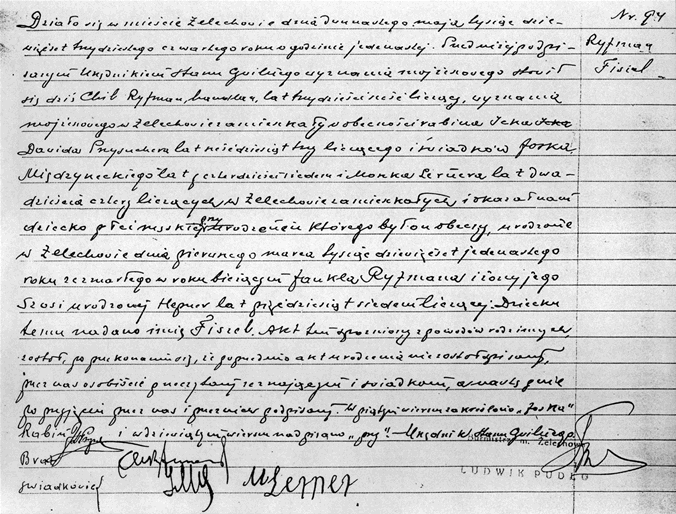 Nr. 94
Ryfman
Fisiel
Działo się w mieście Żelechowie dnia dwunastego maja tysiąc dzie-
więćset trzydziestego czwartego roku o godzinie jedenastej. Przed niżej podpi-
sanym Urzędnikiem Stanu Cywilnego wyznania mojżeszowego stawił
się dziś Chil Ryfman, lat trzydzieści sześć liczący, wyznania
mojżeszowego w Żelechowie zamieszkały w obecności rabina Icka
Dawida Przysuchera lat sześćdziesiąt trzy liczącego i świadków Joska
Międzyrzeckiego lat czterdzieści siedem i Moska Lernera lat dwa-
dzieścia cztery liczących, w Żelechowie zamieszkałych i okazał nam
dziecko płci męskiej przy urodzeniu którego był on obecny, urodzone
w Żelechowie dnia pierwszego marca tysiąc dziewięćset jedenastego
roku ze zmarłego w roku bieżącym Jankla Ryfmana i żony jego
Szasi urodzonej Hepner lat pięćdziesiąt siedem liczącej. Dziecku
temu nadano imię Fisiel. Akt ten spóźniony z powodów rodzinnych,
został, po przekonaniu się, że poprzednio akt urodzenia nie został spisany,
przez nas osobiście przeczytany zeznającym i świadkom, a następnie
po przyjęciu przez nas i przez nich podpisany. W piątym wierszu zakreślono "Joska"
Rabin i w dziewiątym wierszu nadpisano "przy". Urzędnik Stanu Cywilnego
Burmistrz m. Żelechowa
Brat
LUDWIK PUDŁO
świadkowie M Lerner